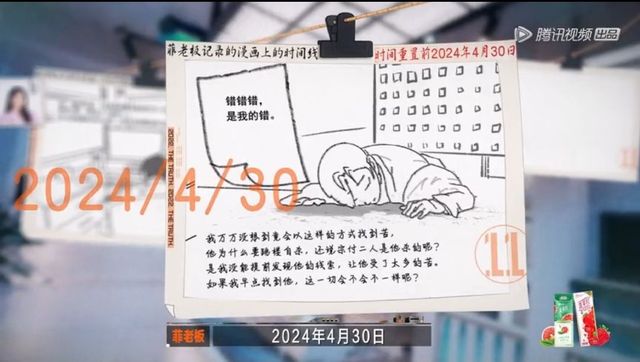 腾讯视频 出品
菲老板记录的漫画上的时间线
时间重置前2024年4月30日
错错错，
是我的错。
2024/4/30
2022. THE TRUTH. 2022. THE TRUTH.
我万万没想到竟会以这样的方式找到苦，
他为什么要跳楼自杀，还说宗付二人是他杀的呢？
是我没能提前发现他的线索，让他受了太多的苦。
如果我早点找到他，这一切会不会不一样呢？
11
菲老板
2024年4月30日